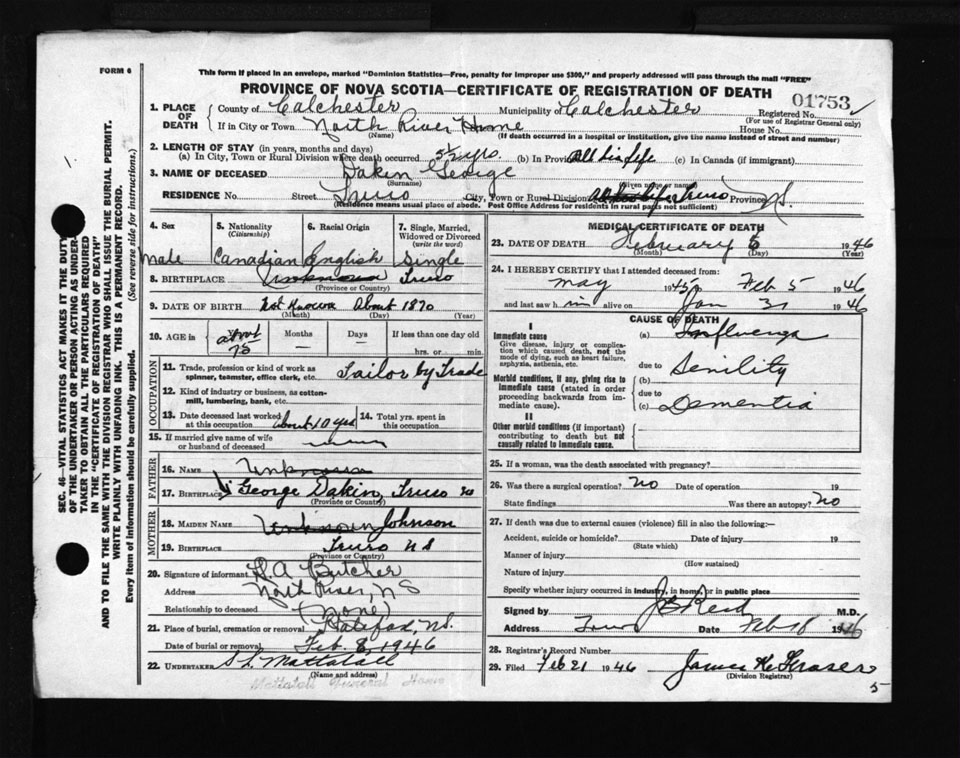 FORM 6
This form if placed in an envelope, marked "Dominion Statistics—Free, penalty for improper use $300," and properly addressed will pass through the mail "FREE"
PROVINCE OF NOVA SCOTIA—CERTIFICATE OF REGISTRATION OF DEATH
01753
1. PLACE OF DEATH County of Colchester Municipality of Colchester Registered No.
(For use of Registrar General only)
If in City or Town North River Home House No.
(Name) (If death occurred in a hospital or institution, give the name instead of street and number)
2. LENGTH OF STAY (in years, months and days)
(a) In City, Town or Rural Division where death occurred 5½ yrs. (b) In Province All his life (c) In Canada (if immigrant)
3. NAME OF DECEASED Dakin George
(Surname) (Given name or names)
RESIDENCE No. Street Truro City, Town or Rural Division Truro Province N.S.
(Residence means usual place of abode. Post Office Address for residents in rural parts not sufficient)
4. Sex 5. Nationality (Citizenship) 6. Racial Origin 7. Single, Married, Widowed or Divorced (write the word)
Male Canadian English Single
8. BIRTHPLACE Unknown Truro
(Province or Country)
9. DATE OF BIRTH Not Known About 1870
(Month) (Day) (Year)
10. AGE in about 75 Months — Days — If less than one day old
hrs. or min.
OCCUPATION
11. Trade, profession or kind of work as spinner, teamster, office clerk, etc. Tailor by Trade
12. Kind of industry or business, as cotton-mill, lumbering, bank, etc.
13. Date deceased last worked at this occupation about 10 yrs 14. Total yrs. spent in this occupation
15. If married give name of wife or husband of deceased
FATHER
16. NAME Unknown
17. BIRTHPLACE George Dakin, Truro NS
(Province or Country)
MOTHER
18. MAIDEN NAME Unknown Johnson
19. BIRTHPLACE Truro NS
(Province or Country)
20. Signature of informant H. A. Butcher
Address North River, NS
Relationship to deceased (none)
21. Place of burial, cremation or removal Halifax, N.S.
Date of burial or removal Feb. 8, 1946
22. UNDERTAKER S. L. Mattatall
(Name and address)
Mattatall Funeral Home
MEDICAL CERTIFICATE OF DEATH
23. DATE OF DEATH February 5 1946
(Month) (Day) (Year)
24. I HEREBY CERTIFY that I attended deceased from:
May 1945 to Feb 5 1946
and last saw him alive on Jan 31 1946
CAUSE OF DEATH
I
Immediate cause
Give disease, injury or complication which caused death, not the mode of dying, such as heart failure, asphyxia, asthenia, etc.
(a) Influenza
due to
Morbid conditions, if any, giving rise to immediate cause (stated in order proceeding backwards from immediate cause).
(b) Senility
due to
(c) Dementia
II
Other morbid conditions (if important) contributing to death but not causally related to immediate cause.
25. If a woman, was the death associated with pregnancy?
26. Was there a surgical operation? No Date of operation 19
State findings Was there an autopsy? No
27. If death was due to external causes (violence) fill in also the following:—
Accident, suicide or homicide? Date of injury 19
(State which)
Manner of injury
(How sustained)
Nature of injury
Specify whether injury occurred in industry, in home, or in public place
Signed by J B Reid M.D.
Address Truro Date Feb 18 1946
28. Registrar's Record Number
29. Filed Feb 21 1946 James K. Fraser
(Division Registrar)
5
SEC. 46—VITAL STATISTICS ACT MAKES IT THE DUTY
OF THE UNDERTAKER OR PERSON ACTING AS UNDERTAKER TO OBTAIN ALL THE PARTICULARS REQUIRED
IN THE "CERTIFICATE OF REGISTRATION OF DEATH"
AND TO FILE THE SAME WITH THE DIVISION REGISTRAR WHO SHALL ISSUE THE BURIAL PERMIT.
WRITE PLAINLY WITH UNFADING INK. THIS IS A PERMANENT RECORD.
Every item of information should be carefully supplied. (See reverse side for instructions.)